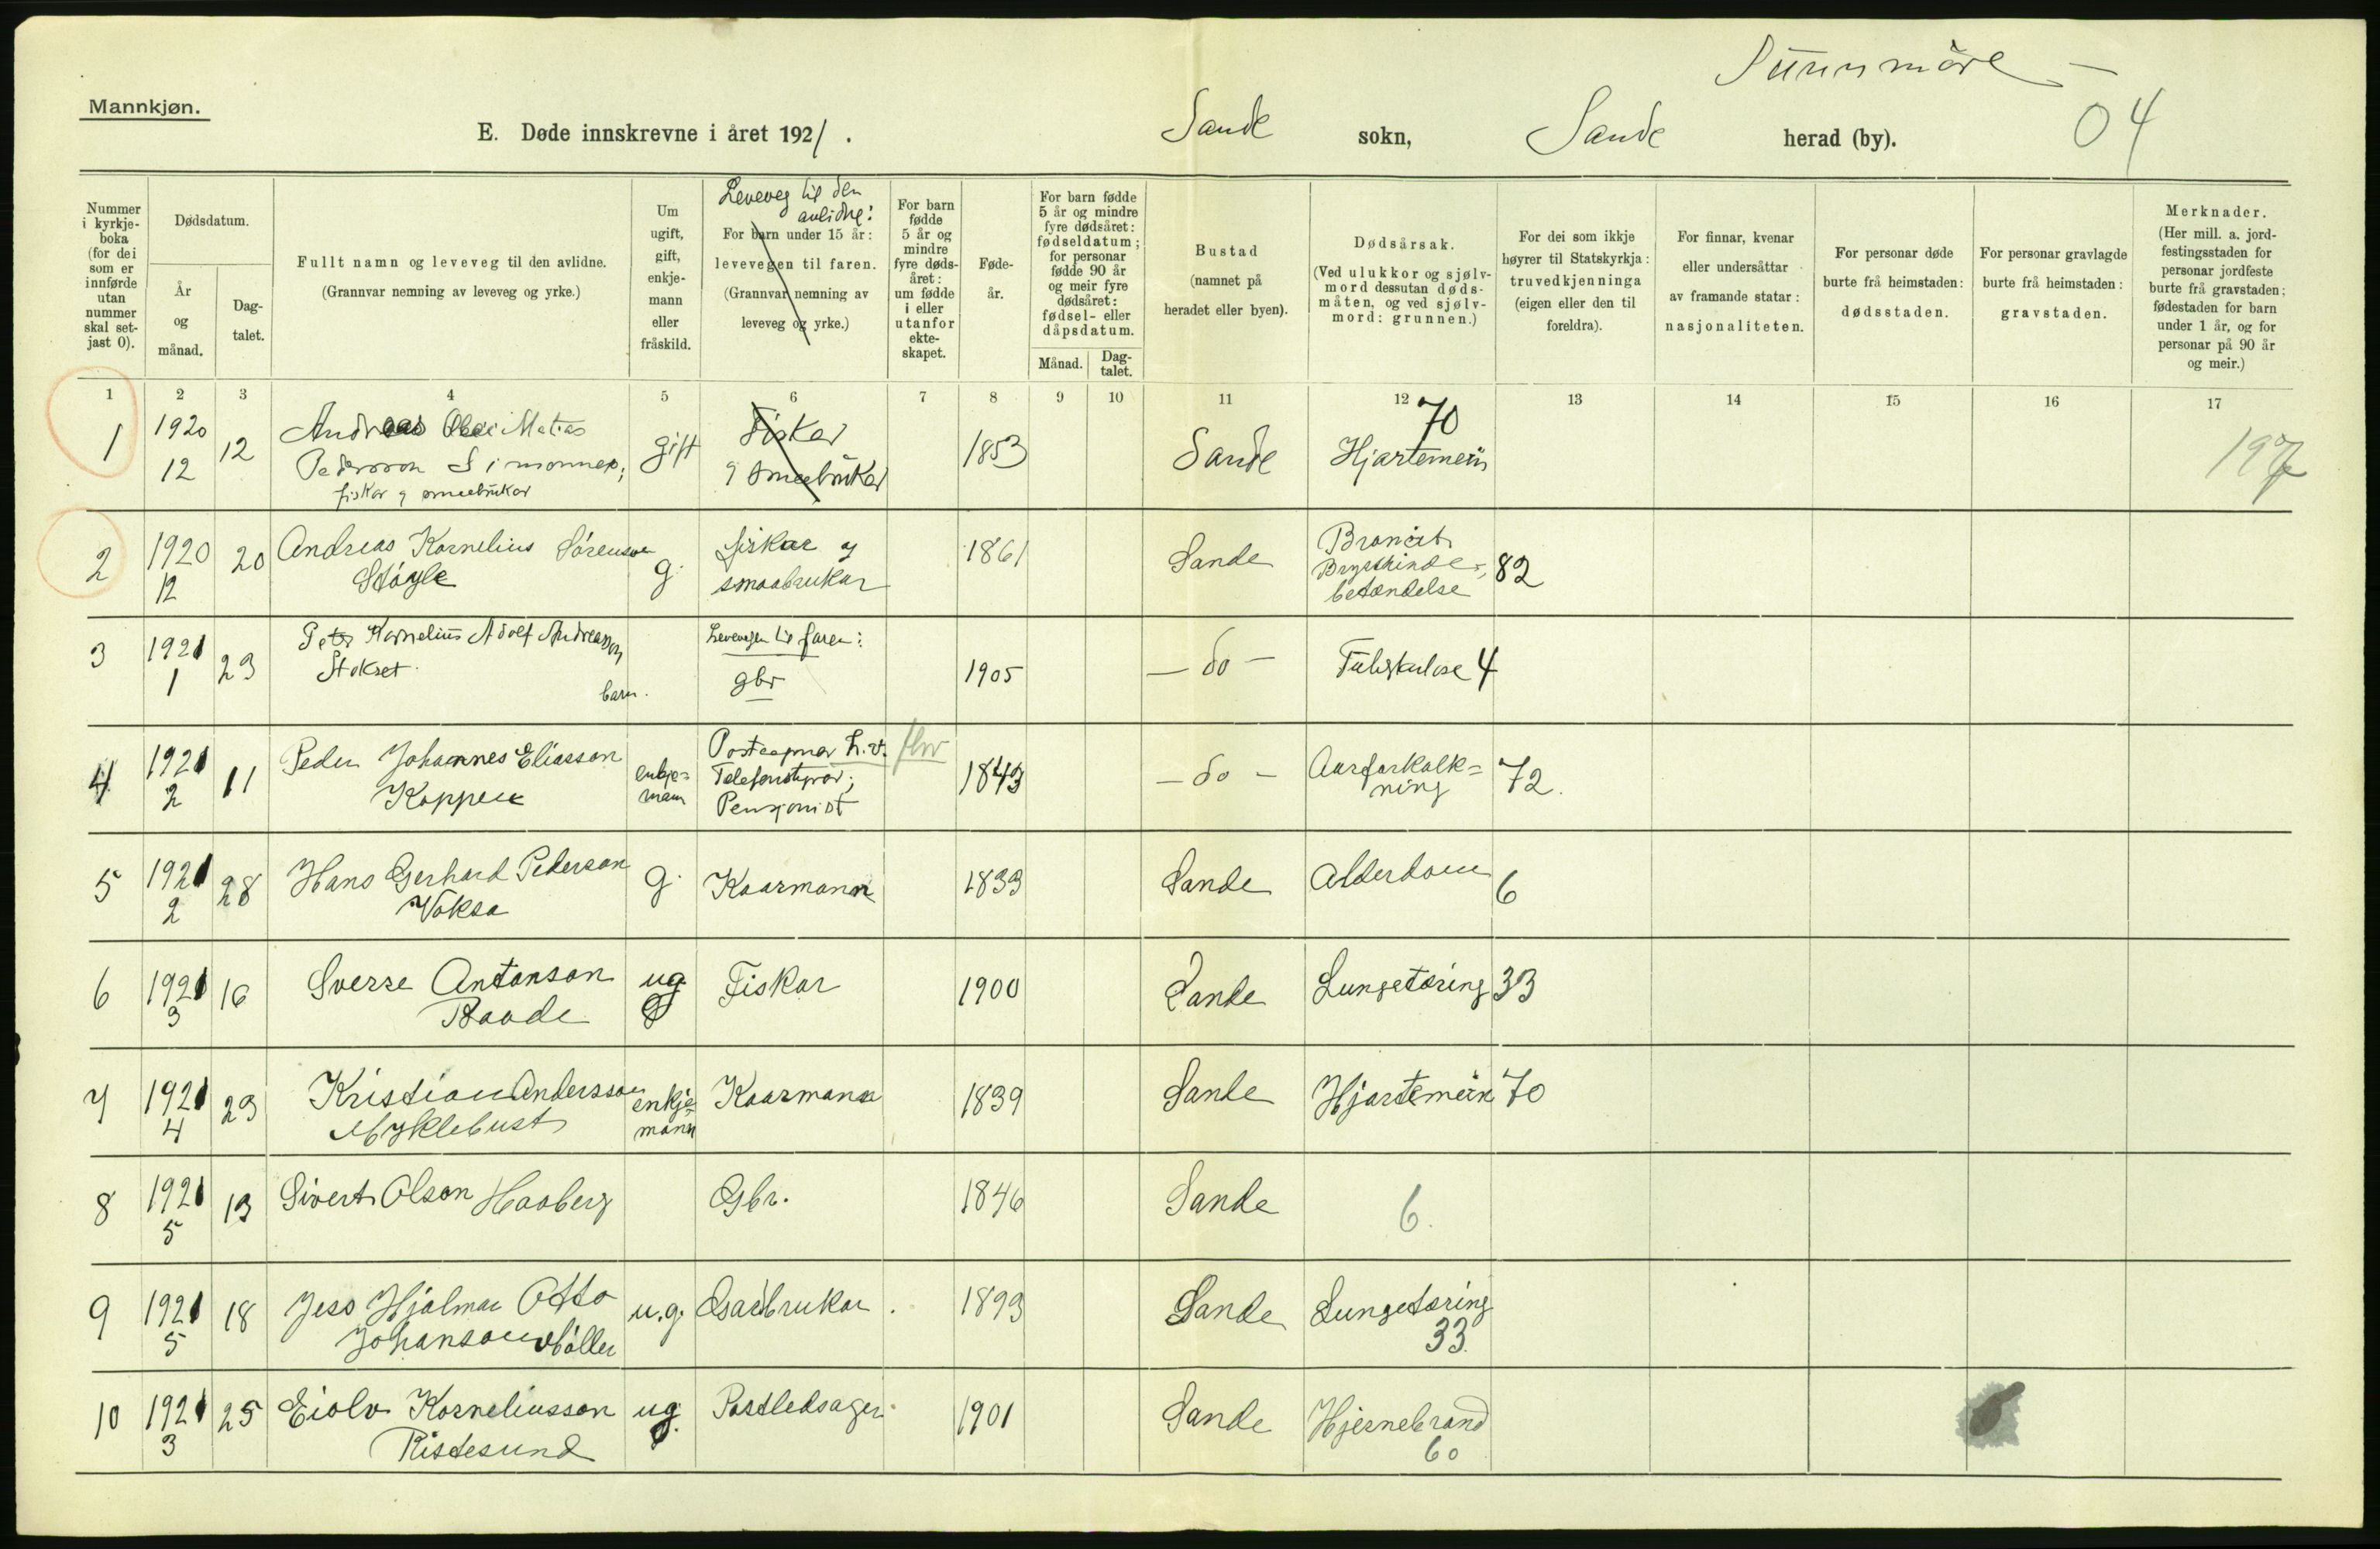 Sunnmöre –
Mannkjøn.
E. Døde innskrevne i året 1921.
Sande sokn, Sande herad (by). 04
Nummer i kyrkjeboka (for dei som er innførde utan nummer skal setjast 0).
Dødsdatum.
År og månad.
Dagtalet.
Fullt namn og leveveg til den avlidne.
(Grannvar nemning av leveveg og yrke.)
Um ugift, gift, enkjemann eller fråskild.
Leveveg til den avlidne:
For barn under 15 år: levevegen til faren.
(Grannvar nemning av leveveg og yrke.)
For barn fødde 5 år og mindre fyre dødsåret: um fødde i eller utanfor ekteskapet.
Fødeår.
For barn fødde 5 år og mindre fyre dødsåret: fødseldatum; for personar fødde 90 år og meir fyre dødsåret: fødsel- eller dåpsdatum.
Månad. Dagtalet.
Bustad
(namnet på heradet eller byen).
Dødsårsak.
(Ved ulukkor og sjølvmord dessutan dødsmåten, og ved sjølvmord: grunnen.)
For dei som ikkje høyrer til Statskyrkja: truvedkjenninga (eigen eller den til foreldra).
For finnar, kvenar eller undersåttar av framande statar: nasjonaliteten.
For personar døde burte frå heimstaden: dødsstaden.
For personar gravlagde burte frå heimstaden: gravstaden.
Merknader.
(Her mill. a. jordfestingsstaden for personar jordfeste burte frå gravstaden; fødestaden for barn under 1 år, og for personar på 90 år og meir.)
1 2 3 4 5 6 7 8 9 10 11 12 13 14 15 16 17
1 1920 12 12 Andreas Matias Pederson Simonnes; fiskar og smaabrukar gift Fiskar og smaabrukar 1853 Sande Hjartemein 70
2 1920 12 20 Andreas Kornelius Sörenson Stöyle g. fiskar og smaabrukar 1861 Sande Bronkit. Brysthinde-betændelse 82
3 1921 1 23 Peter Kornelius Adolf Andreasson Stokset. barn. Levevegen til faren: gbr 1905 – do – Tuberkulose 4
4 1921 2 11 Peder Johannes Eliasson Koppen enkjemann Postaapnar h.v. Telefonstyrar; Pensjonist 1843 – do – Aarforkalkning 72.
5 1921 2 28 Hans Gerhard Pederson Voksa g. Kaarmann 1833 Sande Alderdom 6
6 1921 3 16 Sverre Antonson Baade ug Fiskar 1900 Sande Lungetæring 33
7 1921 4 23 Kristian Andersson Myklebust enkjemann Kaarmann 1839 Sande Hjartemein 70
8 1921 5 13 Sivert Olson Haaberg Gbr. 1846 Sande 6.
9 1921 5 18 Jess Hjalmar Otto Johanson Möller u.g. Gardbrukar. 1893 Sande Lungetæring 33.
10 1921 3 25 Eiolv Korneliusson Ristesund ug. Postledsager 1901 Sande Hjernebrand 60